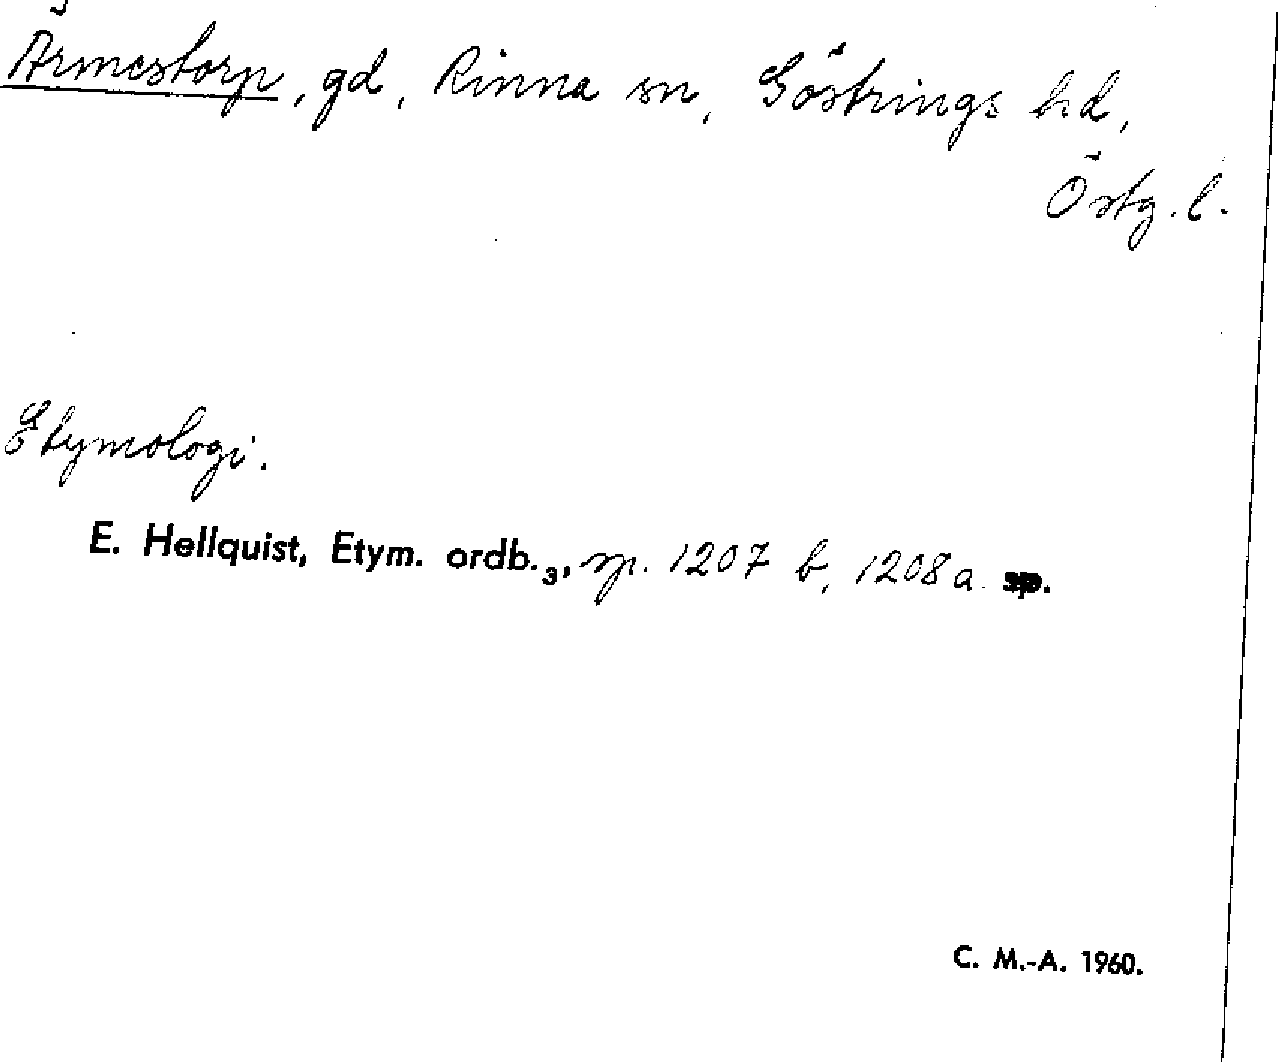 Ärmestorp, gd, Rinna sn, Göstrings hd,
Östg. l.
Etymologi.
E. Hellquist, Etym. ordb.₃, sp. 1207 b, 1208 a sp.
C. M.-A. 1960.